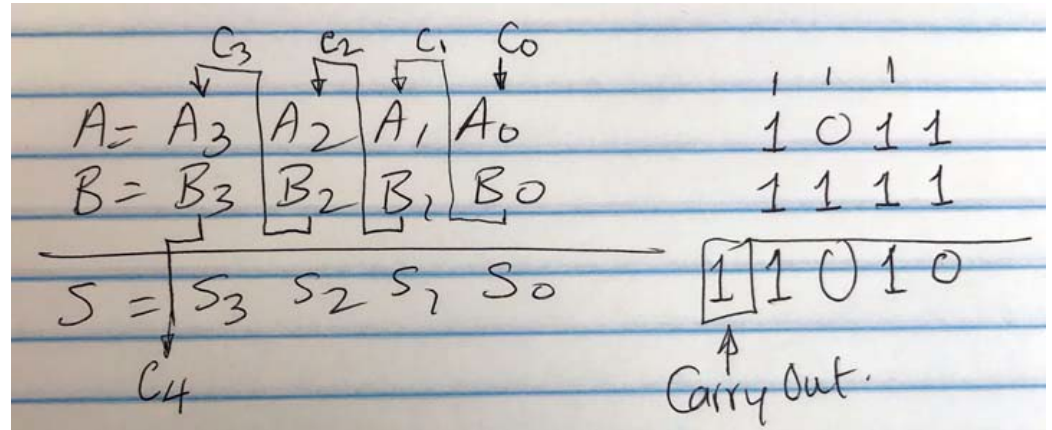 C3 C2 C1 C0
A = A3 A2 A1 A0
B = B3 B2 B1 B0
S = S3 S2 S1 S0
C4
1 1 1
1 0 1 1
1 1 1 1
1 1 0 1 0
Carry Out.